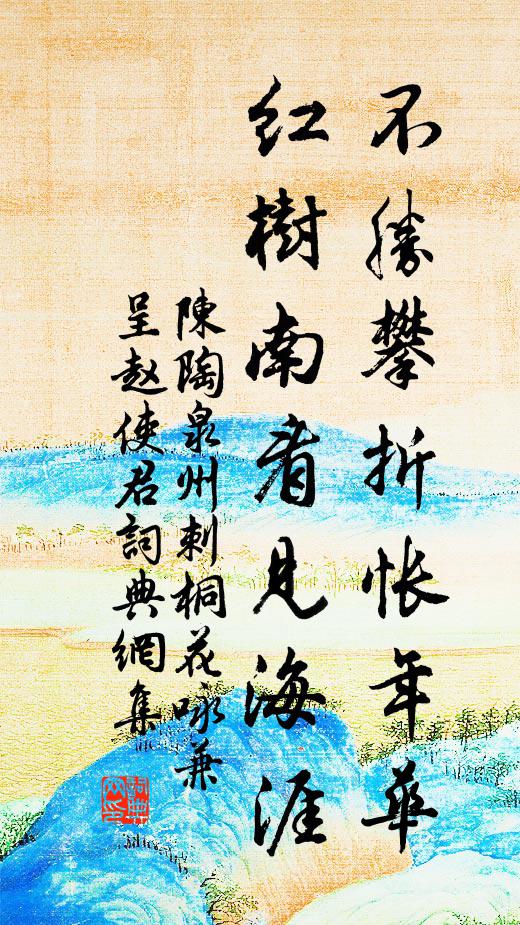 不勝攀折悵年華
紅樹南看見海涯
陳陶泉州刺桐花咏兼
呈赵使君詞典網集